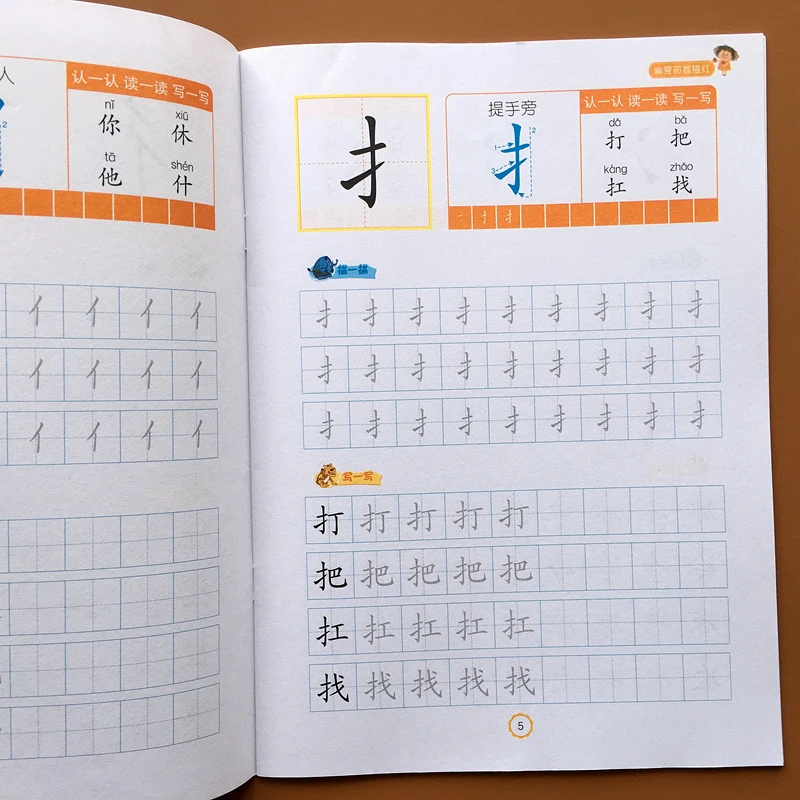 人
2
认一认 读一读 写一写
nǐ xiū
你 休
tā shén
他 什
亻 亻 亻 亻
亻 亻 亻 亻
亻 亻 亻 亻
偏旁部首描红
扌
提手旁
1 2 3
认一认 读一读 写一写
dǎ bǎ
打 把
káng zhǎo
扛 找
一 扌 扌
描一描
扌 扌 扌 扌 扌 扌 扌 扌 扌
扌 扌 扌 扌 扌 扌 扌 扌 扌
扌 扌 扌 扌 扌 扌 扌 扌 扌
写一写
打 打 打 打 打
把 把 把 把 把
扛 扛 扛 扛 扛
找 找 找 找 找
5